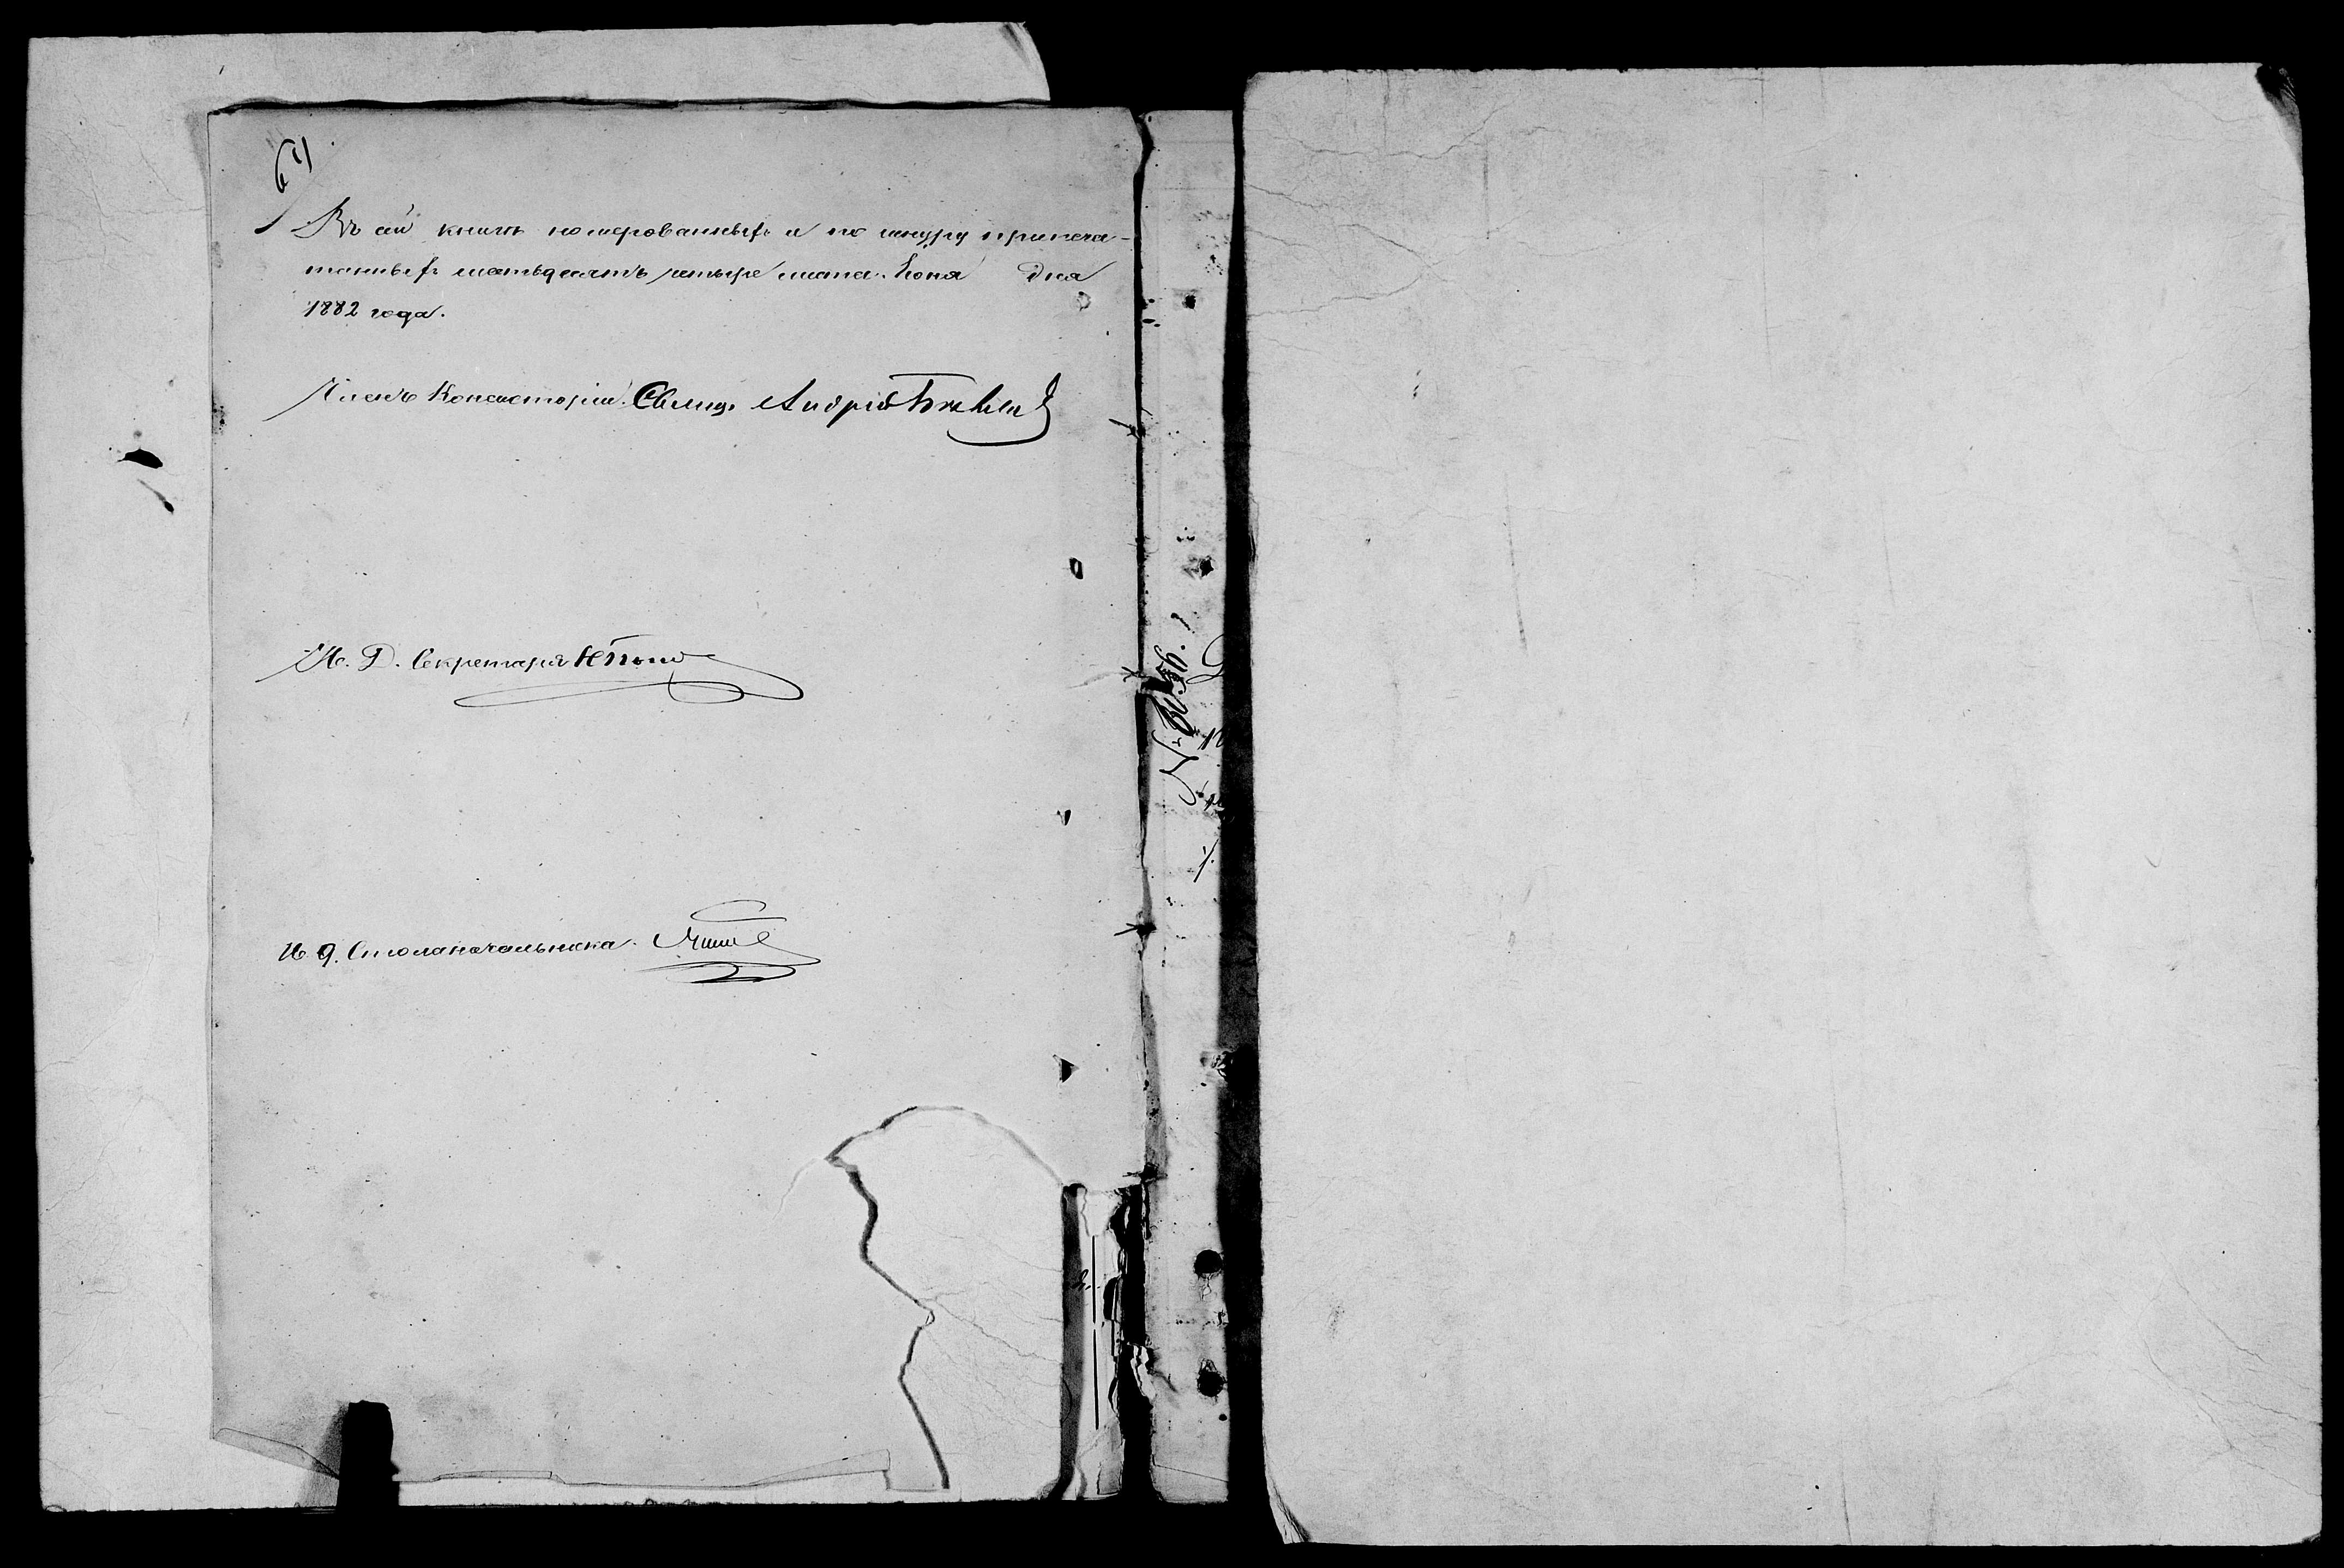 64
Въ сей книгѣ номерованныхъ и по шнуру припеча-
танныхъ шестьдесятъ четыре листа. Іюня дня
1882 года.
Членъ Консисторіи Свящ. Андрей
И. Д. Секретаря
И. д. Столоначальника